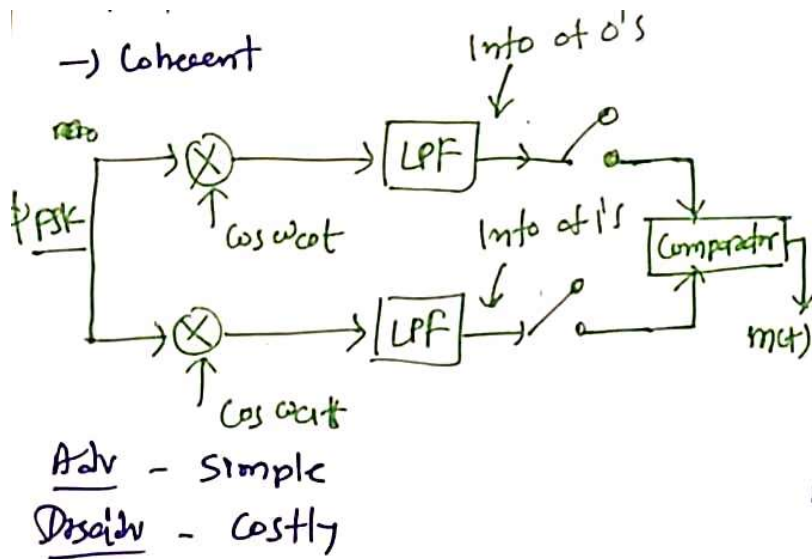 → Coherent
Info of 0's
LPF
cos ωc0t
φFSK
Info of 1's
Comparator
LPF
m(t)
cos ωc1t
Adv - Simple
Disadv - Costly